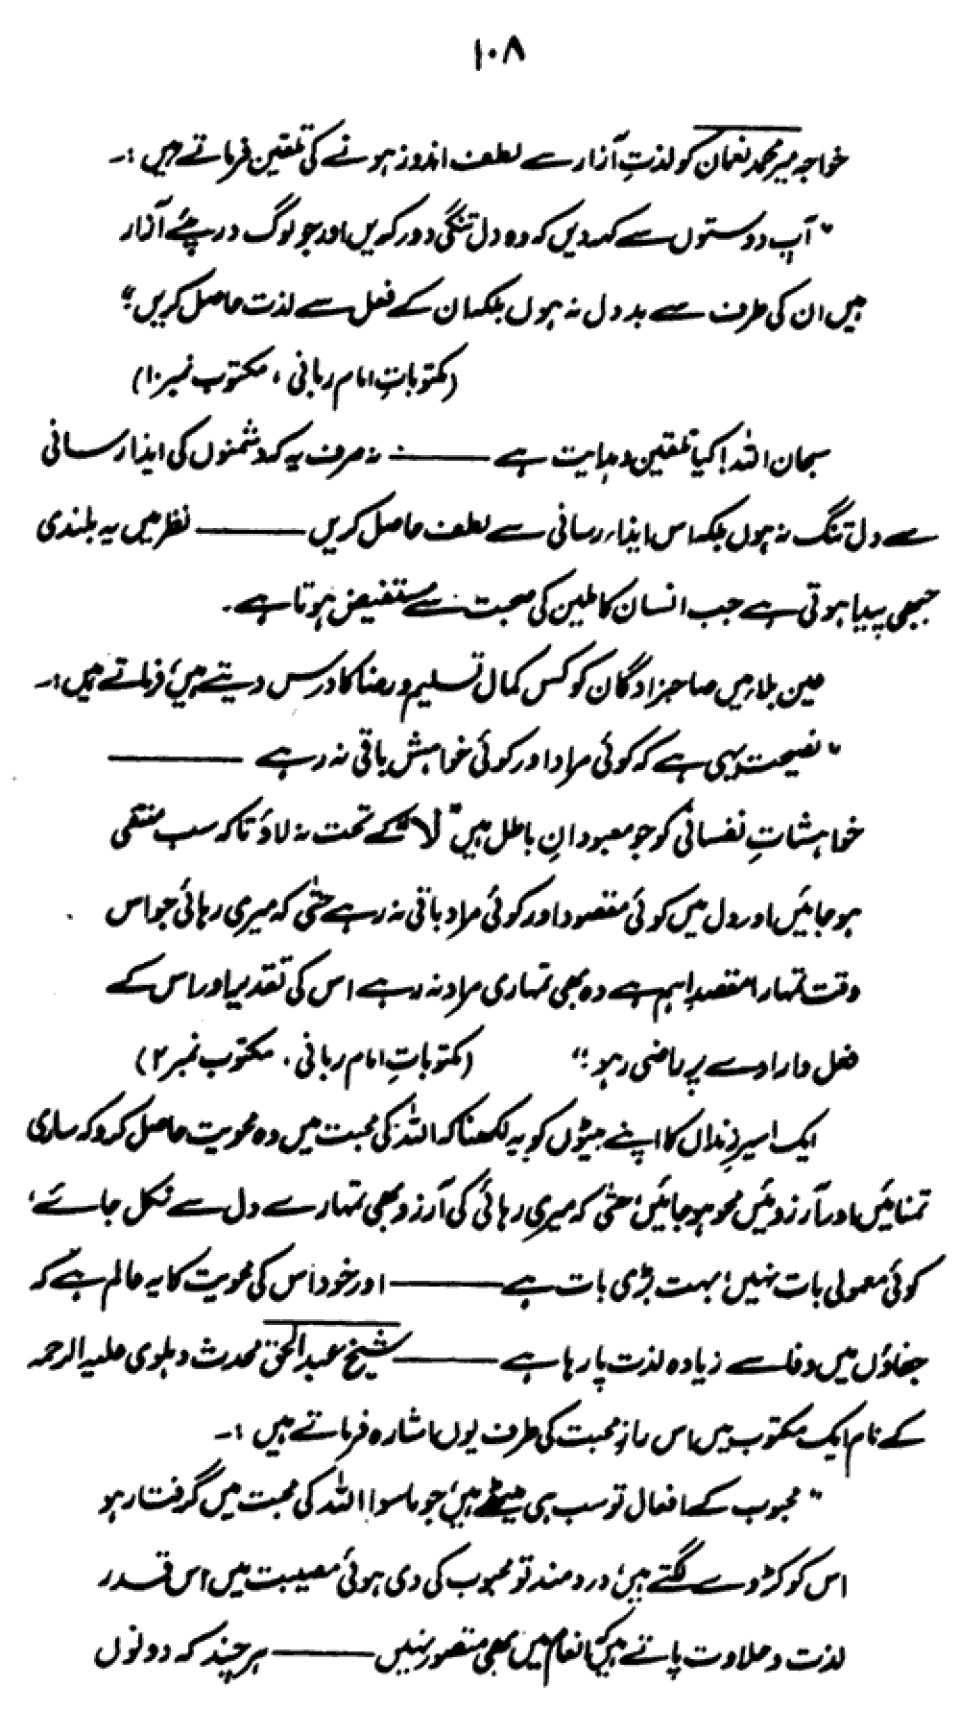 ۱۰۸
خواجہ میر محمد نعمان کو لذتِ آزار سے لطف اندوز ہونے کی تلقین فرماتے ہیں :۔
"آپ دوستوں سے کہہ دیں کہ وہ دل تنگی دور کریں اور جو لوگ درپئے آزار
ہیں ان کی طرف سے بد دل نہ ہوں بلکہ ان کے فعل سے لذت حاصل کریں"
(مکتوباتِ امام ربانی ، مکتوب نمبر ۱۰)
سبحان اللہ! کیا تلقین و ہدایت ہے ——— نہ صرف یہ کہ دشمنوں کی ایذا رسانی
سے دل تنگ نہ ہوں بلکہ اس ایذاء رسانی سے لطف حاصل کریں ——— نظر میں یہ بلندی
جبھی پیدا ہوتی ہے جب انسان کاملین کی صحبت سے مستفیض ہوتا ہے۔
عین بلا میں صاحبزادگان کو کس کمال تسلیم و رضا کا درس دیتے ہیں، فرماتے ہیں :۔
"نصیحت یہی ہے کہ کوئی مراد اور کوئی خواہش باقی نہ رہے ———
خواہشاتِ نفسانی کو جو معبودانِ باطل ہیں "لا" کے تحت نہ لاؤ تاکہ سب منتفی
ہو جائیں اور دل میں کوئی مقصود اور کوئی مراد باقی نہ رہے حتٰی کہ میری رہائی جو اس
وقت تمہارا مقصدِ اہم ہے وہ بھی تمہاری مراد نہ رہے اس کی تقدیر اور اس کے
فعل و ارادے پر راضی رہو"؛ (مکتوباتِ امام ربانی ، مکتوب نمبر ۲)
ایک اسیرِ زنداں کا اپنے بیٹوں کو یہ لکھنا کہ اللہ کی محبت میں وہ محویت حاصل کرو کہ ساری
تمنائیں اور آرزوئیں محو ہو جائیں، حتٰی کہ میری رہائی کی آرزو بھی تمہارے دل سے نکل جائے،
کوئی معمولی بات نہیں، بہت بڑی بات ہے ——— اور خود اس کی محویت کا یہ عالم ہے کہ
جفاؤں میں وفا سے زیادہ لذت پا رہا ہے ——— شیخ عبدالحق محدث دہلوی علیہ الرحمہ
کے نام ایک مکتوب میں اس رازِ محبت کی طرف یوں اشارہ فرماتے ہیں :۔
"محبوب کے افعال تو سب ہی میٹھے ہیں، جو ماسوا اللہ کی محبت میں گرفتار ہو
اس کو کڑوے لگتے ہیں، دردمند تو محبوب کی دی ہوئی مصیبت میں اس قدر
لذت و حلاوت پاتے ہیں کہ انعام میں بھی متصور نہیں ——— ہر چند کہ دونوں